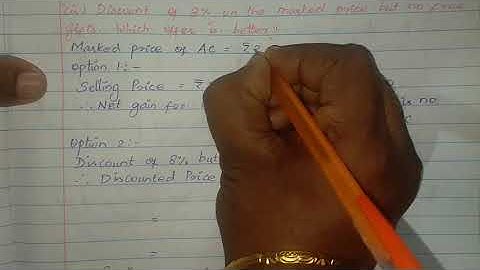 (ii) Discount of 8% on the marked price but no free
gifts. Which offer is better?
Marked price of AC = ₹
Option 1:-
Selling Price = ₹
∴ Net gain for is no
Option 2:-
Discount of 8% but
∴ Discounted Price
=
=